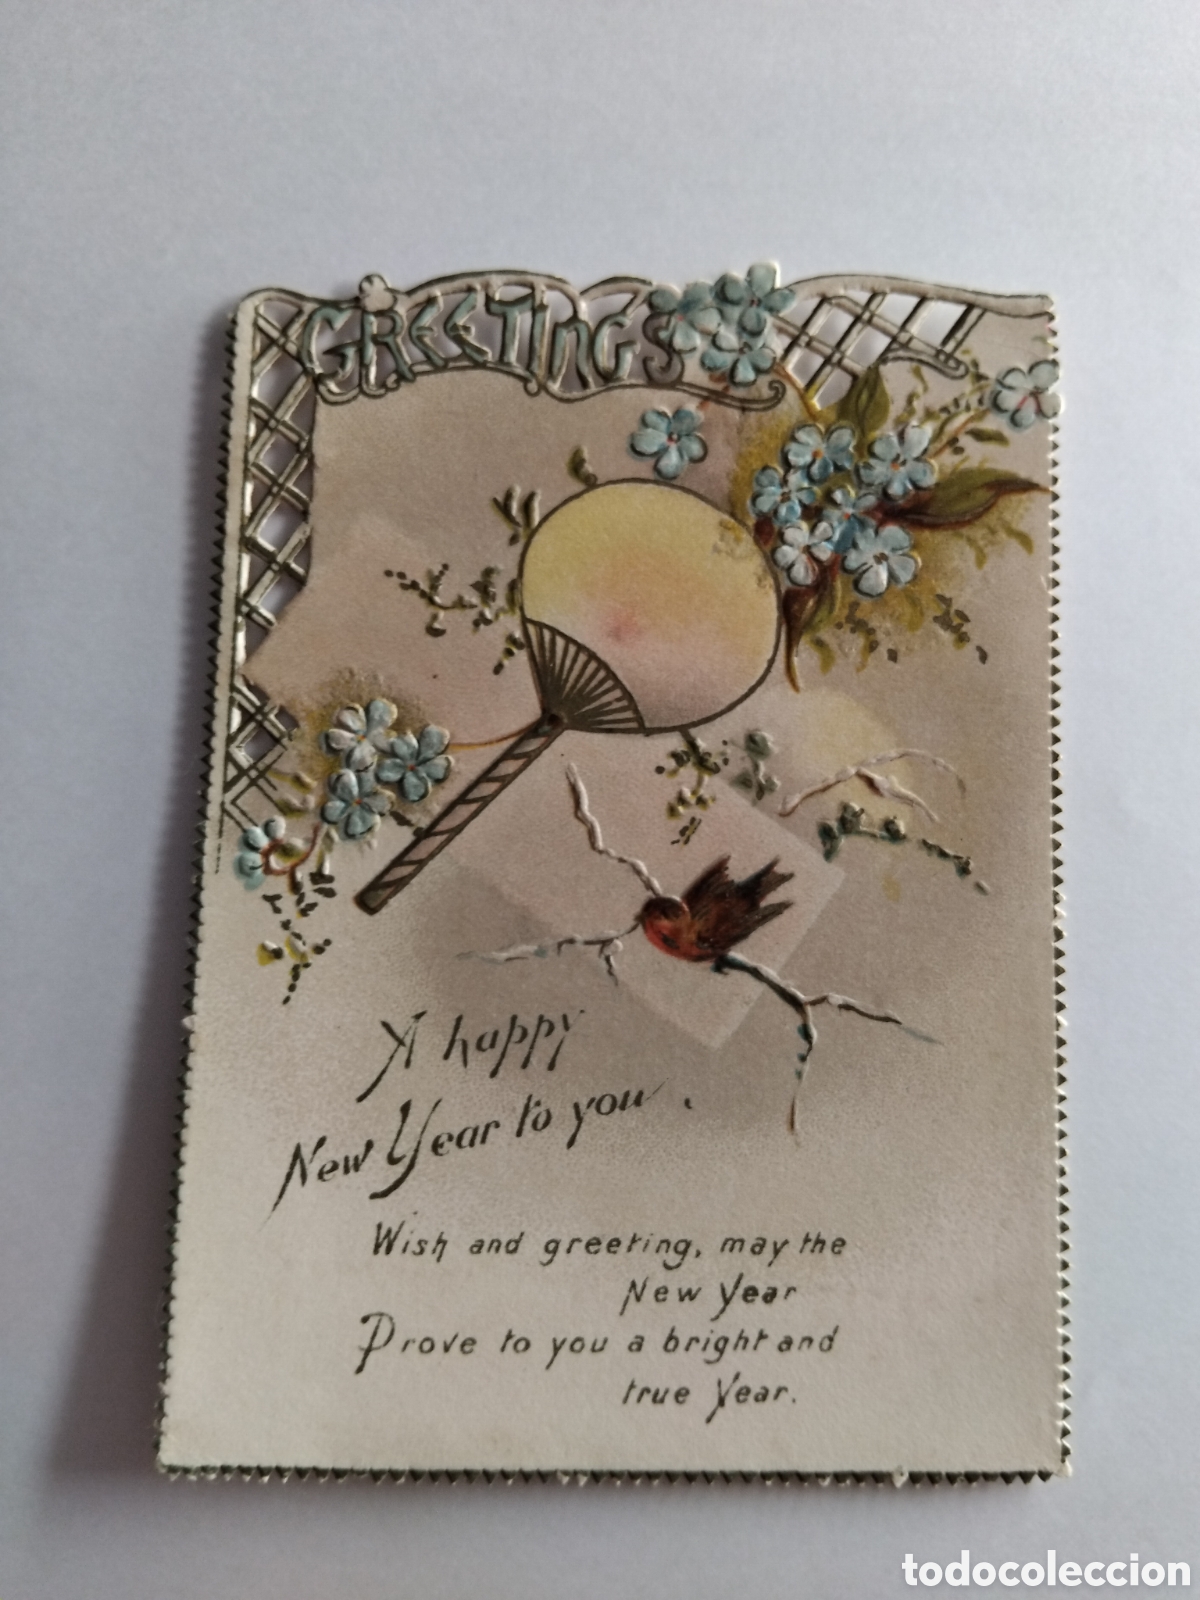 GREETINGS
A happy
New Year to you.
Wish and greeting, may the
New Year
Prove to you a bright and
true Year.
todocoleccion